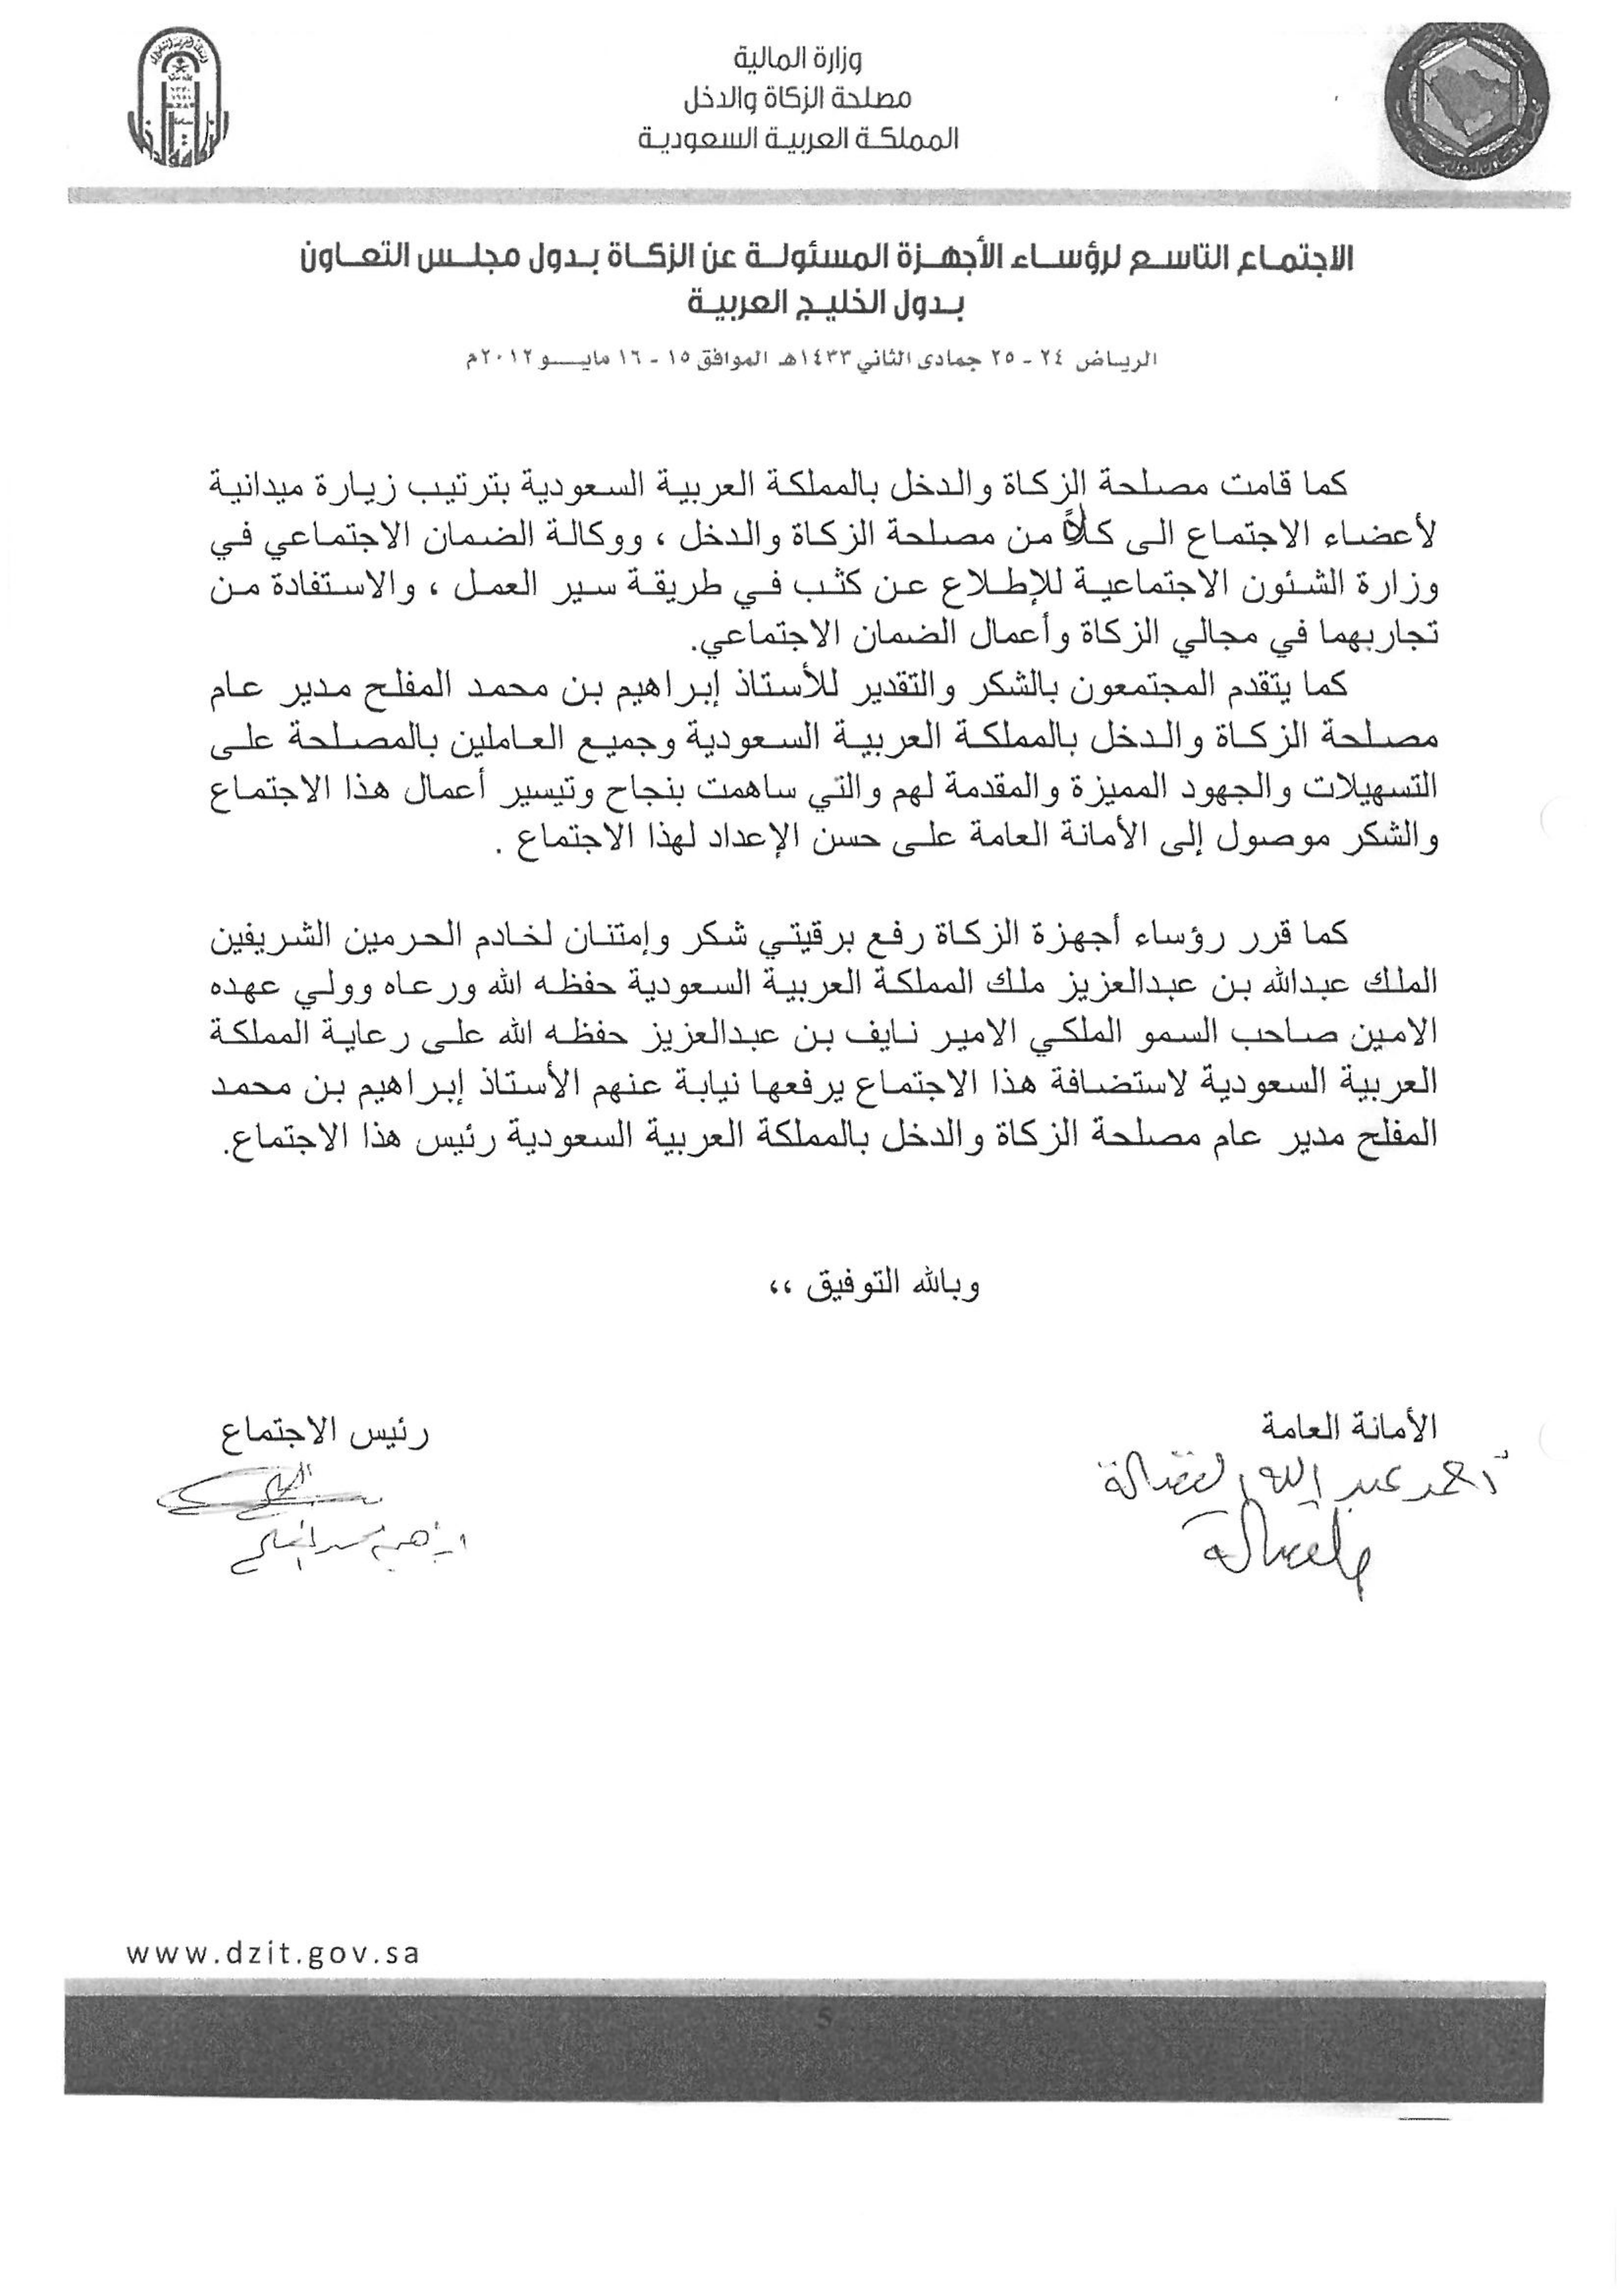 وزارة المالية
مصلحة الزكاة والدخل
المملكة العربية السعودية
الاجتماع التاسع لرؤساء الأجهزة المسئولة عن الزكاة بدول مجلس التعاون
بدول الخليج العربية
الرياض ٢٤ - ٢٥ جمادى الثاني ١٤٣٣هـ الموافق ١٥ - ١٦ مايو ٢٠١٢م
كما قامت مصلحة الزكاة والدخل بالمملكة العربية السعودية بترتيب زيارة ميدانية
لأعضاء الاجتماع الى كلاً من مصلحة الزكاة والدخل ، ووكالة الضمان الاجتماعي في
وزارة الشئون الاجتماعية للإطلاع عن كثب في طريقة سير العمل ، والاستفادة من
تجاربهما في مجالي الزكاة وأعمال الضمان الاجتماعي.
كما يتقدم المجتمعون بالشكر والتقدير للأستاذ إبراهيم بن محمد المفلح مدير عام
مصلحة الزكاة والدخل بالمملكة العربية السعودية وجميع العاملين بالمصلحة على
التسهيلات والجهود المميزة والمقدمة لهم والتي ساهمت بنجاح وتيسير أعمال هذا الاجتماع
والشكر موصول إلى الأمانة العامة على حسن الإعداد لهذا الاجتماع .
كما قرر رؤساء أجهزة الزكاة رفع برقيتي شكر وإمتنان لخادم الحرمين الشريفين
الملك عبدالله بن عبدالعزيز ملك المملكة العربية السعودية حفظه الله ورعاه وولي عهده
الامين صاحب السمو الملكي الامير نايف بن عبدالعزيز حفظه الله على رعاية المملكة
العربية السعودية لاستضافة هذا الاجتماع يرفعها نيابة عنهم الأستاذ إبراهيم بن محمد
المفلح مدير عام مصلحة الزكاة والدخل بالمملكة العربية السعودية رئيس هذا الاجتماع.
وبالله التوفيق ،،
الأمانة العامة
أحمد عبد الله
رئيس الاجتماع
ابراهيم محمد المفلح
www.dzit.gov.sa
5